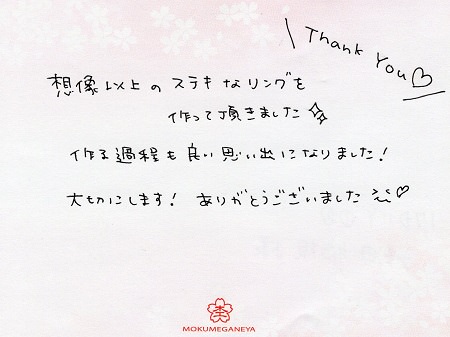 Thank You♡
想像以上のステキなリングを
作って頂きました
作る過程も良い思い出になりました!
大切にします! ありがとうございました ♡
杢
MOKUMEGANEYA